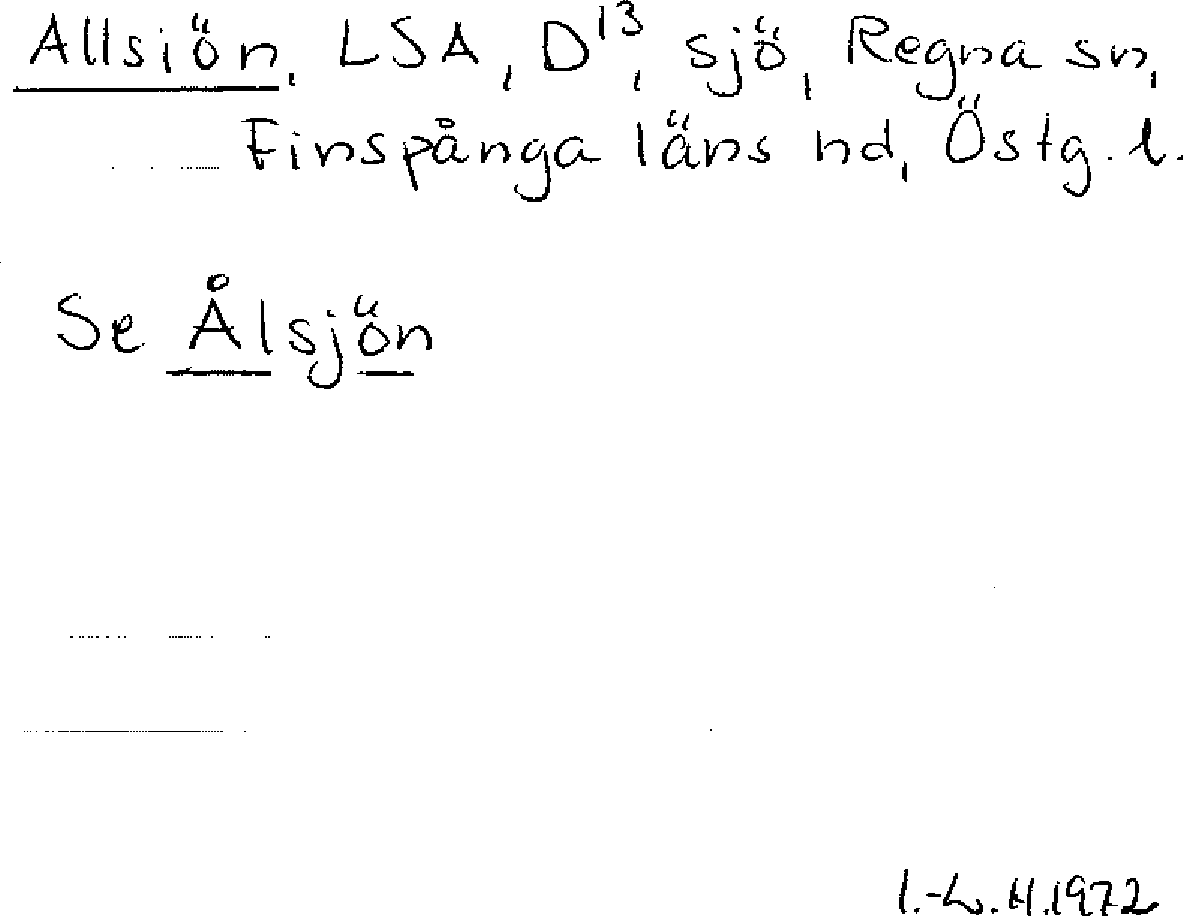 Allsiön, LSA, D13, sjö, Regna sn,
Finspånga läns hd, Östg. l.
Se Ålsjön
I.-L. H. 1972